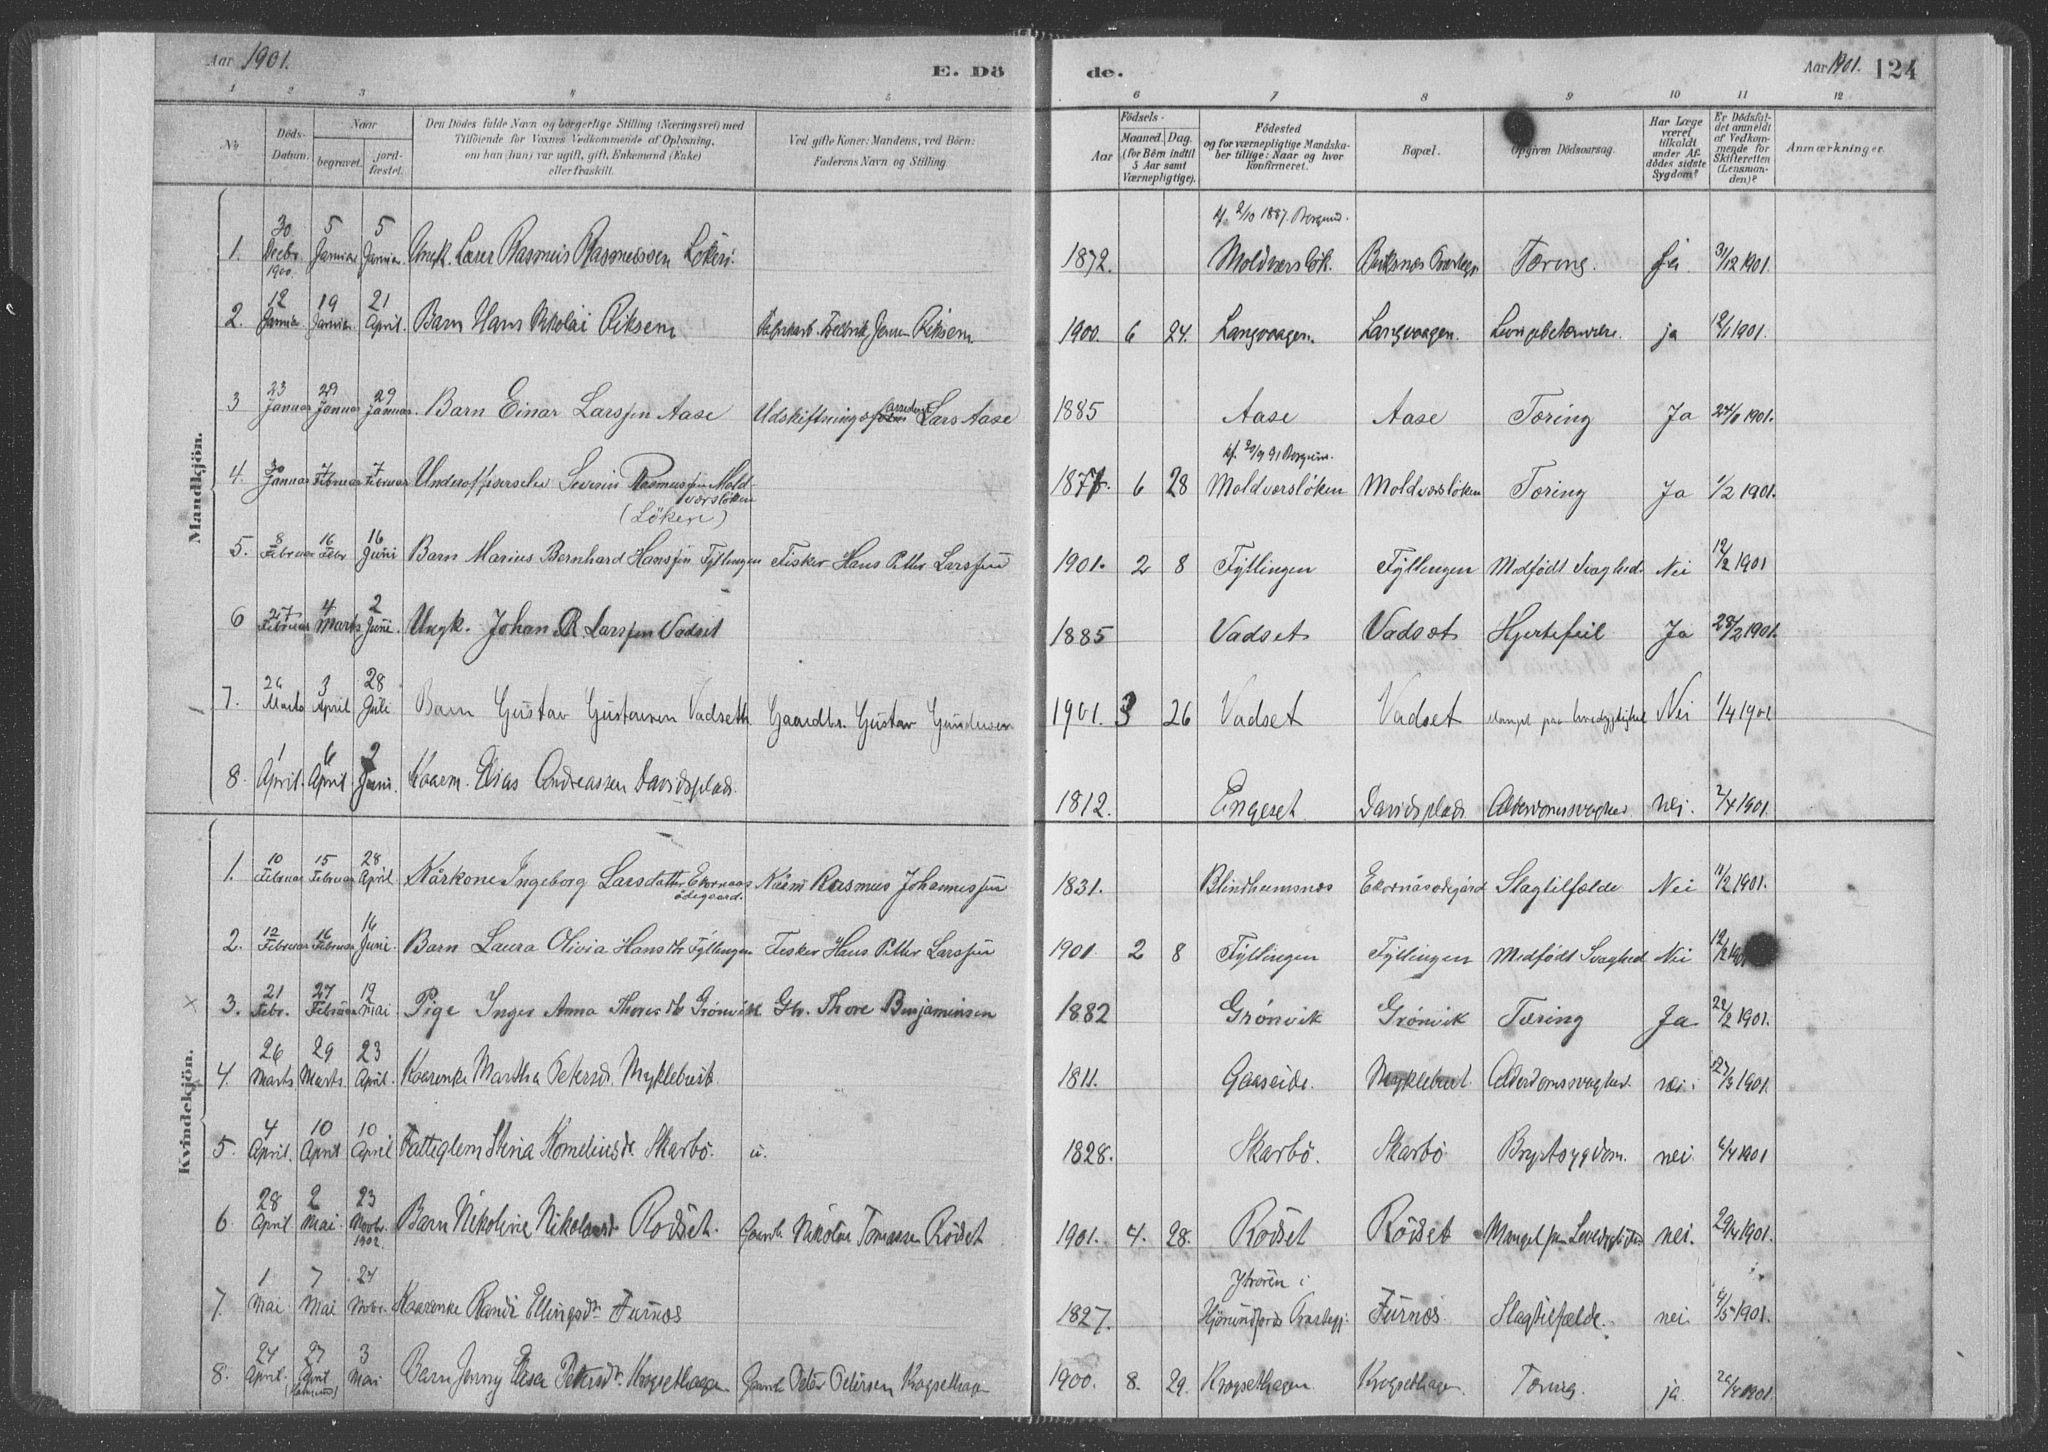 Aar 1901. E. Dö de. Aar 1901. 124
1 2 3 4 5 6 7 8 9 10 11 12
No
Döds-Datum.
Naar
begravet.
jordfæstet.
Den Dödes fulde Navn og borgerlige Stilling (Næringsvei) med
Tilföiende for Voxnes Vedkommende af Oplysning,
om han (hun) var ugift, gift, Enkemand (Enke)
eller fraskilt.
Ved gifte Koner: Mandens, ved Börn:
Faderens Navn og Stilling.
Födsels-
Aar
Maaned. Dag.
(for Börn indtil
5 Aar samt
Værnepligtige).
Födested
og for værnepligtige Mandska-
ber tillige: Naar og hvor
konfirmeret.
Bopæl.
Opgiven Dödsaarsag.
Har Læge
været
tilkaldt
under Af-
dödes sidste
Sygdom?
Er Dödsfal-
det anmeldt
af Vedkom-
mende for
Skifteretten
(Lensman-
den)?
Anmærkninger.
Mandkjön.
1. 30 Decbr. 1900. 5 Januar 5 Januar. Ungk. Lærer Rasmus Rasmussen Löken. 1872. kf. 2/10 1887. Borgund. Moldværslök. Tæring. ja. 31/12 1901.
2. 12 Januar 19 Januar 21 April. Barn Hans Nikolai Riksem Fredrik Jensen Riksem. 1900. 6 24. Langvaagen. Langvaagen. Lungebetændelse. ja 12/1 1901.
3 23 Januar 29 Januar 29 Januar. Barn Einar Larssen Aase Udskiftnings Lars Aase 1885 Aase Aase Tæring Ja 24/1 1901.
4. 30 Januar 7 Februar 7 Februar Underofficerselev Severin Rasmussen Mold-
værslöken
(Löken) 1871. 6 28 Moldværslöken Moldværslöken Tæring Ja 1/2 1901.
5. 8 Februar 16 Febr 16 Juni Barn Marius Bernhard Hanssen Fyllingen Fisker Hans Petter Larssen 1901. 2 8 Fyllingen Fyllingen Medfödt Svaghed. Nei 12/2 1901
6 27 Februar 4 Marts 2 Juni. Ungk. Johan R. Larssen Vadset 1885 Vadset Vadset Hjertefeil Ja 28/2 1901.
7. 26 Marts 3 April 28 Juli Barn Gustav Gustavsen Vadseth Gaardbr. Gustav Gundersen 1901. 3 26 Vadset Vadset Mangel paa Levedygtighed Nei 1/4 1901
8. 1 April. 6 April 2 Juni. Kaarm. Elias Andreassen Davidsplads. 1812. Engeset Davidsplads. Alderdomssvaghed nei. 2/4 1901.
Kvindekjön.
1. 10 Februar 15 Februar 28 April Kårkone Ingeborg Larsdatter Ekornaas
ödegaard. Kårm Rasmus Johannessen 1831. Blindheimsnes Ekornåsödegård Slagtilfælde Nei 11/2 1901.
2. 12 Februar 16 Februar 16 Juni. Barn Laura Olivia Hansdtr Fyllingen Fisker Hans Petter Larssen 1901. 2 8 Fyllingen Fyllingen Medfödt Svaghed Nei 12/2 1901
3. 21 Febr. 27 Februar 12 Mai Pige Inger Anna Thoresdtr Grönvik Gbr. Thore Benjaminsen 1882 Grönvik Grönvik Tæring Ja 22/2 1901.
4. 26 Marts 29 Marts. 23 April. Kaarenke Martha Petersd. Myklebust. 1811. Gaaseide. Myklebust. Alderdomssvaghed. nei. 27/3 1901.
5. 4 April. 10 April 10 April Fattiglem Stina Kornelinsdr. Skarbö. u. 1828. Skarbö. Skarbö Brystsygdom. nei. 6/4 1901
6. 28 April 2 Mai 23 Novbr. 1902. Barn Nikoline Nikolaisdr Rödset. Gaardb. Nikolai Tomassen Rödset 1901. 4. 28. Rödset Rödset Mangel paa Levedygtighed nei. 29/4 1901.
7. 1 Mai 7 Mai 24 Novbr. Kaarenke Randi Ellingsdr Furnes 1827. i
Hjörundfjord Præstegj: Furnes. Slagtilfælde. nei 4/5 1901.
8. 24 April. 27 April 3 Mai Barn Jenny Petersdr. Krogsethagen Gaardb Peter Petersen Krogsethagen 1900. 8. 29. Krogsethagen. Krogsethagen. Tæring. ja. 26/4 1901.